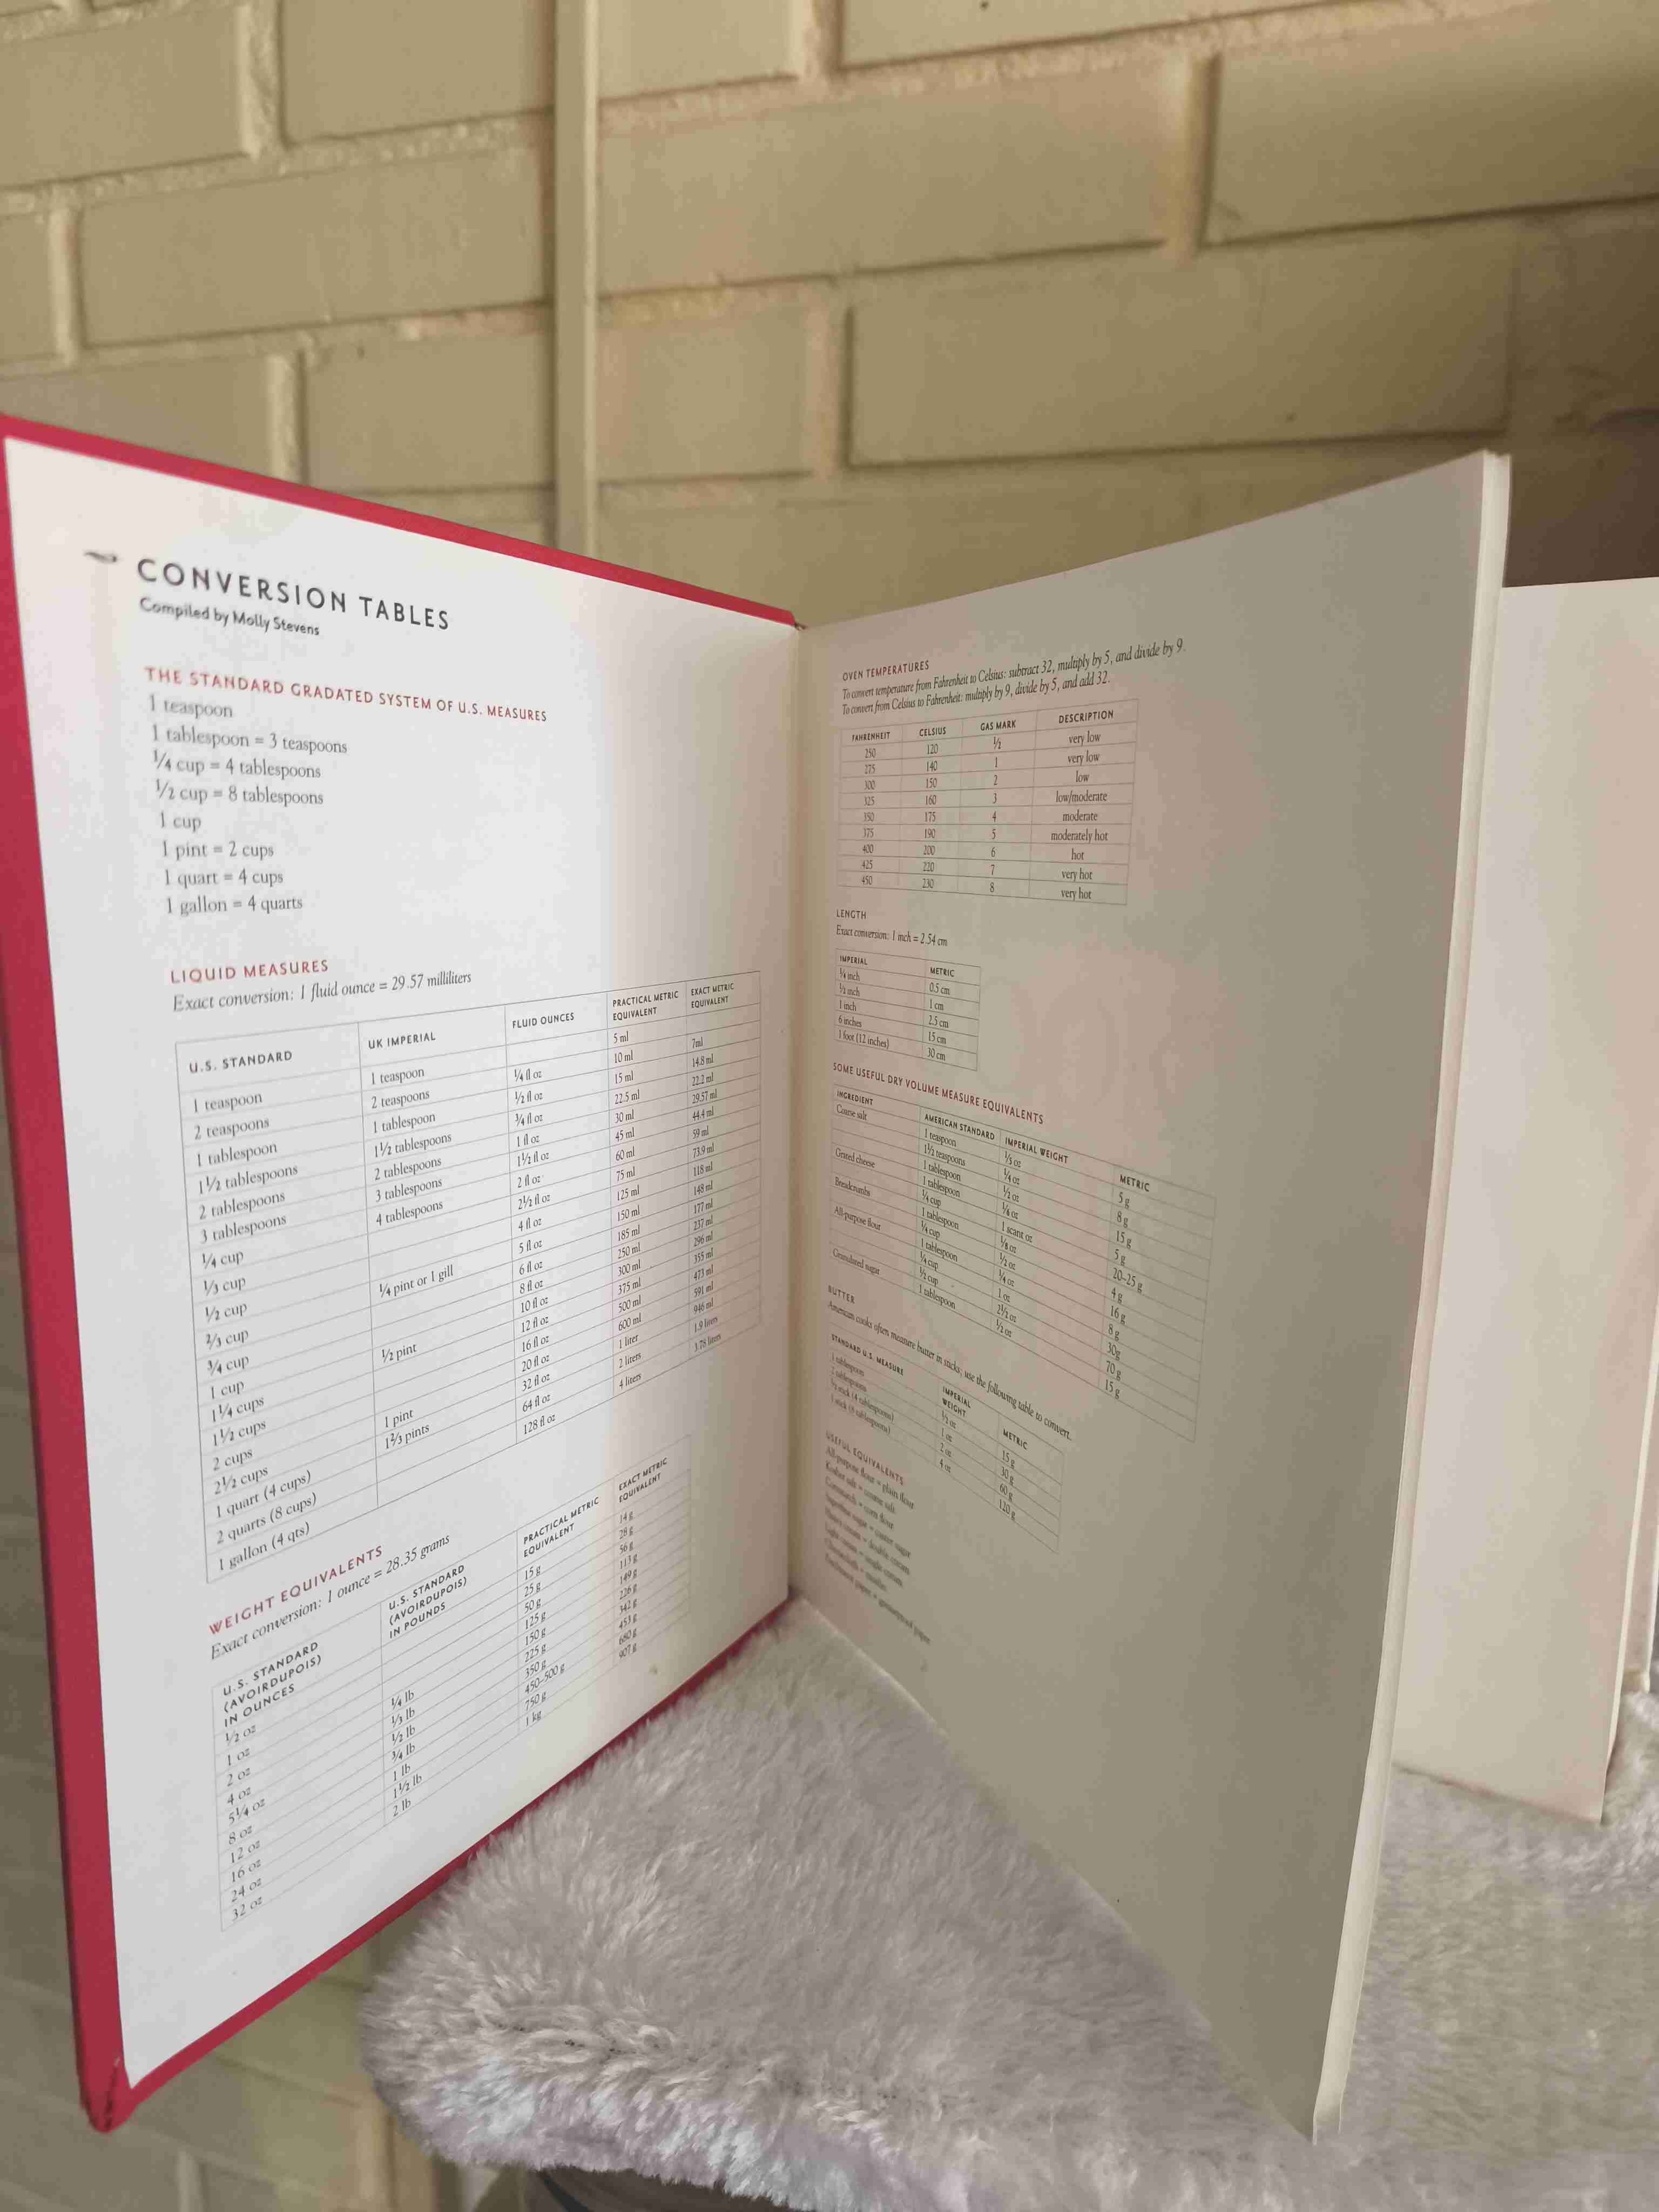 CONVERSION TABLES
Compiled by Molly Stevens
THE STANDARD GRADATED SYSTEM OF U.S. MEASURES
1 teaspoon
1 tablespoon = 3 teaspoons
1/4 cup = 4 tablespoons
1/2 cup = 8 tablespoons
1 cup
1 pint = 2 cups
1 quart = 4 cups
1 gallon = 4 quarts
LIQUID MEASURES
Exact conversion: 1 fluid ounce = 29.57 milliliters
U.S. STANDARD UK IMPERIAL FLUID OUNCES PRACTICAL METRIC EQUIVALENT EXACT METRIC EQUIVALENT
1 teaspoon 1 teaspoon 5 ml
2 teaspoons 2 teaspoons 1/4 fl oz 10 ml 7ml
1 tablespoon 1 tablespoon 1/2 fl oz 15 ml 14.8 ml
1 1/2 tablespoons 1 1/2 tablespoons 3/4 fl oz 22.5 ml 22.2 ml
2 tablespoons 2 tablespoons 1 fl oz 30 ml 29.57 ml
3 tablespoons 3 tablespoons 1 1/2 fl oz 45 ml 44.4 ml
1/4 cup 4 tablespoons 2 fl oz 60 ml 59 ml
1/3 cup 2 1/2 fl oz 75 ml 73.9 ml
1/2 cup 4 fl oz 125 ml 118 ml
2/3 cup 1/4 pint or 1 gill 5 fl oz 150 ml 148 ml
3/4 cup 6 fl oz 185 ml 177 ml
1 cup 1/2 pint 8 fl oz 250 ml 237 ml
1 1/4 cups 10 fl oz 300 ml 296 ml
1 1/2 cups 12 fl oz 375 ml 355 ml
2 cups 1 pint 16 fl oz 500 ml 473 ml
2 1/2 cups 1 2/3 pints 20 fl oz 600 ml 591 ml
1 quart (4 cups) 32 fl oz 1 liter 946 ml
2 quarts (8 cups) 64 fl oz 2 liters 1.9 liters
1 gallon (4 qts) 128 fl oz 4 liters 3.78 liters
WEIGHT EQUIVALENTS
Exact conversion: 1 ounce = 28.35 grams
U.S. STANDARD (AVOIRDUPOIS) IN OUNCES U.S. STANDARD (AVOIRDUPOIS) IN POUNDS PRACTICAL METRIC EQUIVALENT EXACT METRIC EQUIVALENT
1/2 oz 15 g 14 g
1 oz 25 g 28 g
2 oz 50 g 56 g
4 oz 1/4 lb 125 g 113 g
5 1/4 oz 1/3 lb 150 g 149 g
8 oz 1/2 lb 225 g 226 g
12 oz 3/4 lb 350 g 342 g
16 oz 1 lb 450–500 g 453 g
24 oz 1 1/2 lb 750 g 680 g
32 oz 2 lb 1 kg 907 g
OVEN TEMPERATURES
To convert temperature from Fahrenheit to Celsius: subtract 32, multiply by 5, and divide by 9.
To convert from Celsius to Fahrenheit: multiply by 9, divide by 5, and add 32.
FAHRENHEIT CELSIUS GAS MARK DESCRIPTION
250 120 1/2 very low
275 140 1 very low
300 150 2 low
325 160 3 low/moderate
350 175 4 moderate
375 190 5 moderately hot
400 200 6 hot
425 220 7 very hot
450 230 8 very hot
LENGTH
Exact conversion: 1 inch = 2.54 cm
IMPERIAL METRIC
1/4 inch 0.5 cm
1/2 inch 1 cm
1 inch 2.5 cm
6 inches 15 cm
1 foot (12 inches) 30 cm
SOME USEFUL DRY VOLUME MEASURE EQUIVALENTS
INGREDIENT AMERICAN STANDARD IMPERIAL WEIGHT METRIC
Coarse salt 1 teaspoon 1/5 oz 5 g
1 1/2 teaspoons 1/4 oz 8 g
1 tablespoon 1/2 oz 15 g
Grated cheese 1 tablespoon 1/6 oz 5 g
1/4 cup 1 scant oz 20–25 g
Breadcrumbs 1 tablespoon 1/8 oz 4 g
1/4 cup 1/2 oz 16 g
All-purpose flour 1 tablespoon 1/4 oz 8 g
1/4 cup 1 oz 30g
1/2 cup 2 1/2 oz 70 g
Granulated sugar 1 tablespoon 1/2 oz 15 g
BUTTER
American cooks often measure butter in sticks; use the following table to convert.
STANDARD U.S. MEASURE IMPERIAL WEIGHT METRIC
1 tablespoon 1/2 oz 15 g
2 tablespoons 1 oz 30 g
1/2 stick (4 tablespoons) 2 oz 60 g
1 stick (8 tablespoons) 4 oz 120 g
USEFUL EQUIVALENTS
All-purpose flour = plain flour
Kosher salt = coarse salt
Cornstarch = corn flour